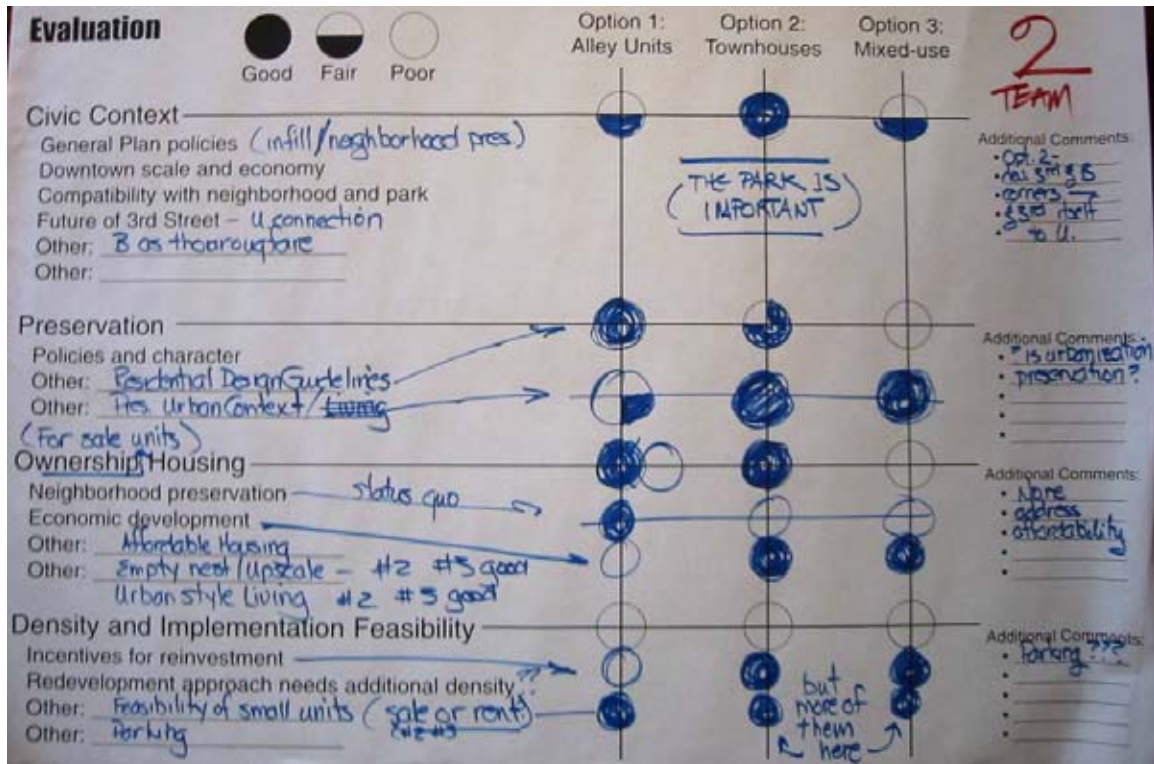 Evaluation
Good Fair Poor
Option 1:
Alley Units
Option 2:
Townhouses
Option 3:
Mixed-use
2
TEAM
Civic Context
General Plan policies (infill/neighborhood pres.)
Downtown scale and economy
Compatibility with neighborhood and park
Future of 3rd Street - U connection
Other: B as thoarougfare
Other:
(THE PARK IS
IMPORTANT)
Additional Comments:
• Opt. 2-
• has 3rd & B
• corners →
• & 3rd itself
• to U.
Preservation
Policies and character
Other: Residential Design Guidelines
Other: Urban Context/Living
Additional Comments:
• "is urbanization
• preservation?
(For sale units)
Ownership Housing
Neighborhood preservation status quo
Economic development
Other: Affordable Housing
Other: Empty nest/Upscale - #2 #3 good
Urban style Living #2 #3 good
Additional Comments:
• None
• address
• affordability
Density and Implementation Feasibility
Incentives for reinvestment
Redevelopment approach needs additional density ??
Other: Feasibility of small units (sale or rent)
#2 #3
Other: Parking
but
more of
them
here
Additional Comments:
• Parking ???